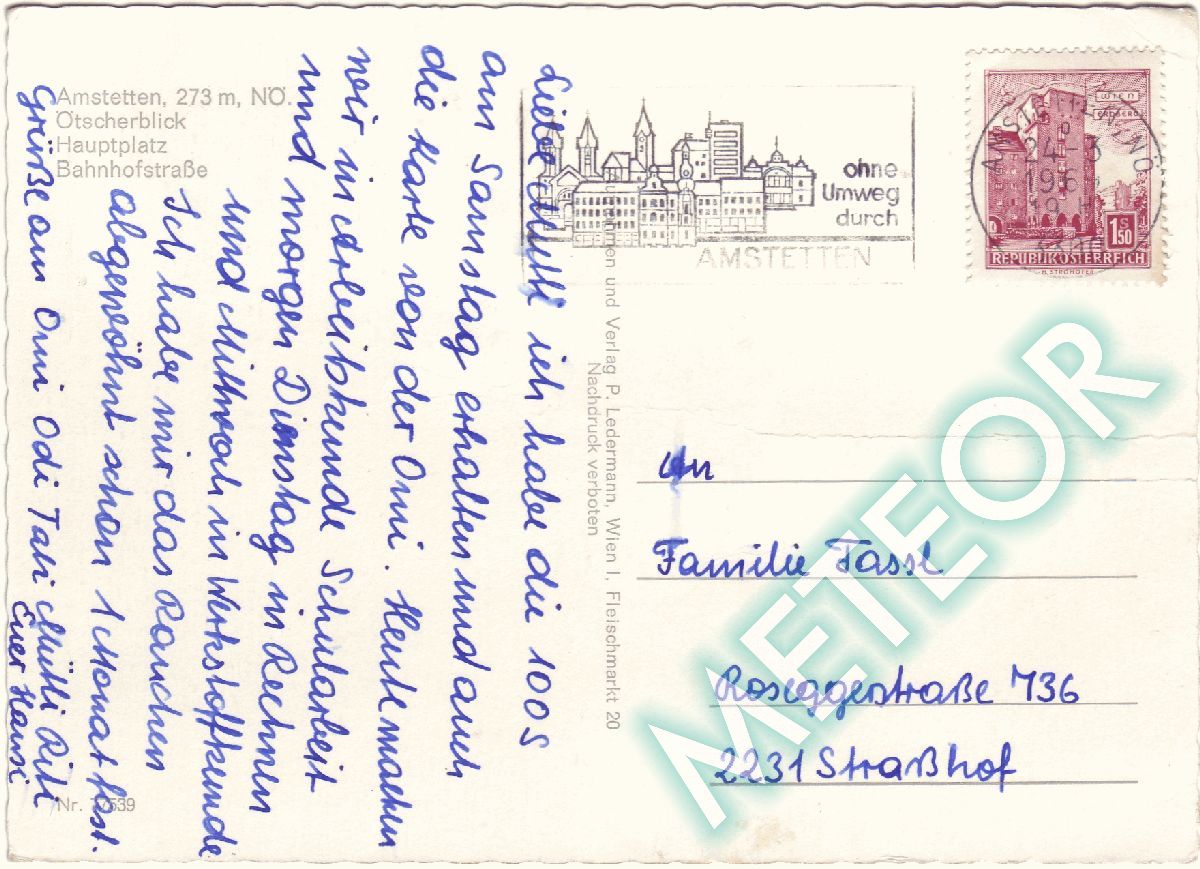 Amstetten, 273 m, NÖ.
Ötscherblick
Hauptplatz
Bahnhofstraße
Nr. 77539
Liebe Mutti ich habe die 100S
am Samstag erhalten und auch
die Karte von der Omi. Heute machen
wir in Arbeitskunde Schularbeit
und morgen Dienstag in Rechnen
und Mittwoch in Werkstoffkunde
Ich habe mir das Rauchen
abgewöhnt schon 1 Monat fast.
Grüße an Omi Odi Tati Mutti Riki
Euer Hansi
und Verlag P. Ledermann, Wien I, Fleischmarkt 20
Nachdruck verboten
ohne
Umweg
durch
AMSTETTEN
WIEN
ERDBERG
1S50
REPUBLIK ÖSTERREICH
24-3
196
An
Familie Tassl
Roseggestraße 736
2231 Straßhof
METEOR